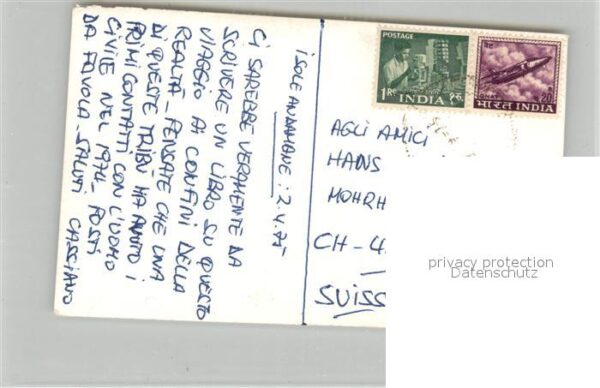 ISOLE ANDAMANE: 2.4.75
CI SAREBBE VERAMENTE DA
SCRIVERE UN LIBRO SU QUESTO
VIAGGIO AI CONFINI DELLA
REALTÀ - PENSATE CHE UNA
DI QUESTE TRIBÙ HA AVUTO I
PRIMI CONTATTI CON L'UOMO
CIVILE NEL 1974. POSTI
DA FAVOLA - SALUTI CASSIANO
POSTAGE
1Re INDIA १रु.
भारत INDIA
AGLI AMICI
HANS
MOHRH
CH-4
SUISS
privacy protection
Datenschutz